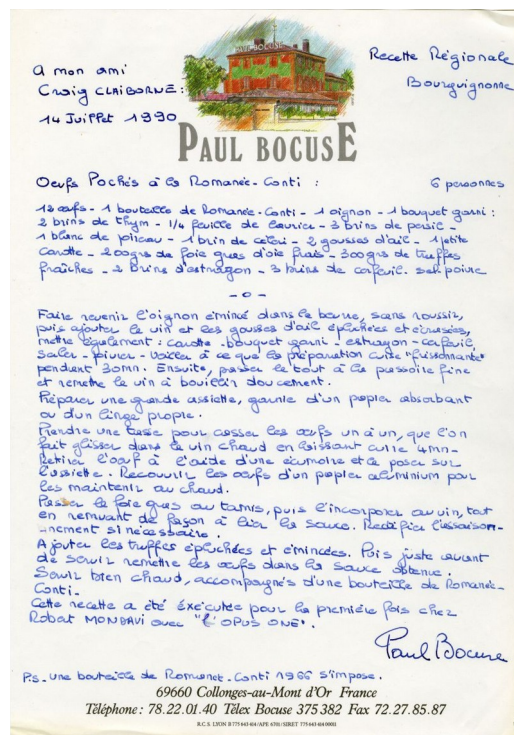 Recette Régionale
Bourguignonne
A mon ami
Craig CLAIBORNE :
14 Juillet 1990
PAUL BOCUSE
PAUL BOCUSE
Oeufs Pochés à la Romanée-Conti :    6 personnes
12 œufs - 1 bouteille de Romanée-Conti - 1 oignon - 1 bouquet garni :
2 brins de thym - 1/4 feuille de laurier - 3 brins de persil -
1 blanc de poireau - 1 brin de céleri - 2 gousses d'ail - 1 petite
carotte - 200grs de foie gras d'oie frais - 300grs de truffes
fraîches - 2 brins d'estragon - 3 brins de cerfeuil. sel. poivre
- o -
Faire revenir l'oignon émincé dans le beurre, sans roussir,
puis ajouter le vin et les gousses d'ail épluchées et écrasées,
mettre également : carotte - bouquet garni - estragon - cerfeuil,
saler - poivrer - veiller à ce que la préparation cuise "frissonnante"
pendant 30mn. Ensuite, passer le tout à la passoire fine
et remettre le vin à bouillir doucement.
Préparer une grande assiette, garnie d'un papier absorbant
ou d'un linge propre.
Prendre une tasse pour casser les œufs un à un, que l'on
fait glisser dans le vin chaud en laissant cuire 4mn-
Retirer l'œuf à l'aide d'une écumoire et le poser sur
l'assiette. Recouvrir les œufs d'un papier aluminium pour
les maintenir au chaud.
Passer le foie gras au tamis, puis l'incorporer au vin, tout
en remuant de façon à lier la sauce. Rectifier l'assaison-
nement si nécessaire.
Ajouter les truffes épluchées et émincées. Puis juste avant
de servir remettre les œufs dans la sauce obtenue.
Servir bien chaud, accompagnés d'une bouteille de Romanée-
Conti.
Cette recette a été éxécutée pour la première fois chez
Robert MONDAVI avec "l'OPUS ONE".
Paul Bocuse
P.S. une bouteille de Romanet-Conti 1966 s'impose.
69660 Collonges-au-Mont d'Or France
Téléphone : 78.22.01.40 Télex Bocuse 375 382 Fax 72.27.85.87
R.C.S. LYON B 775 643 414/APE 6701/SIRET 775 643 414 00011